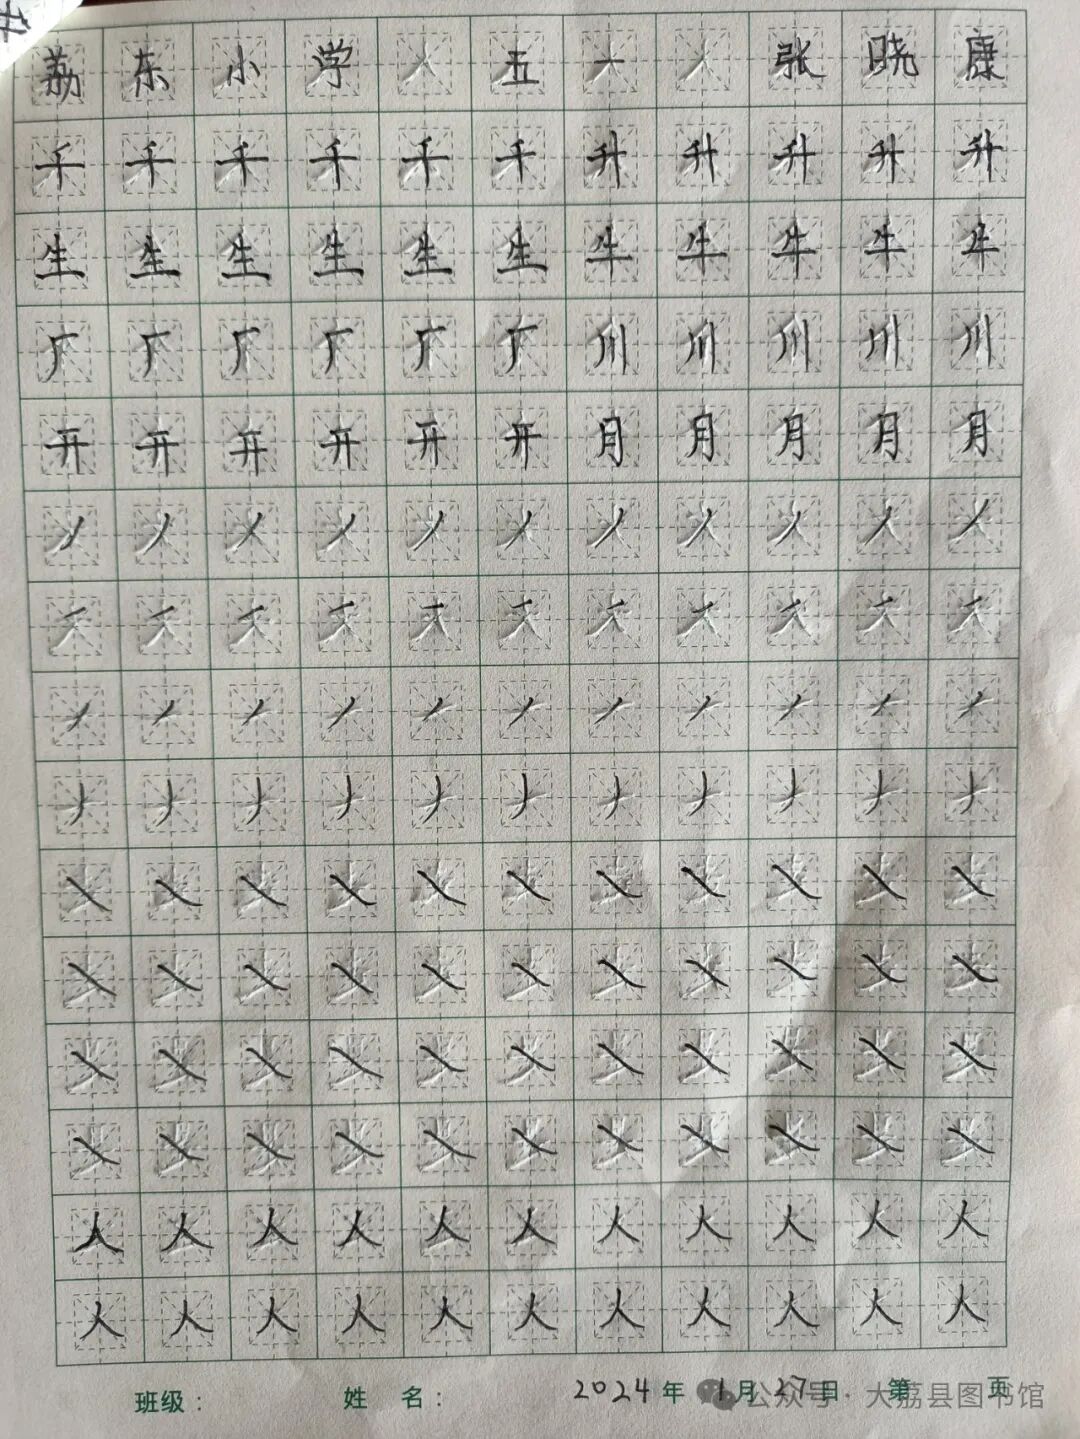 荔东小学 五一 张晓康
千千千千千千升升升升升
生生生生生生牛牛牛牛牛
厂厂厂厂厂厂川川川川川
开开开开开开月月月月月
丿丿丿丿丿丿丿丿丿丿丿
丿丿丿丿丿丿丿丿丿丿丿
丿丿丿丿丿丿丿丿丿丿丿
㇏㇏㇏㇏㇏㇏㇏㇏㇏㇏㇏
㇏㇏㇏㇏㇏㇏㇏㇏㇏㇏㇏
㇏㇏㇏㇏㇏㇏㇏㇏㇏㇏㇏
㇏㇏㇏㇏㇏㇏㇏㇏㇏㇏㇏
人人人人人人人人人人人
人人人人人人人人人人人
班级： 姓 名： 2024年1月27日 第 页
公众号·大荔县图书馆